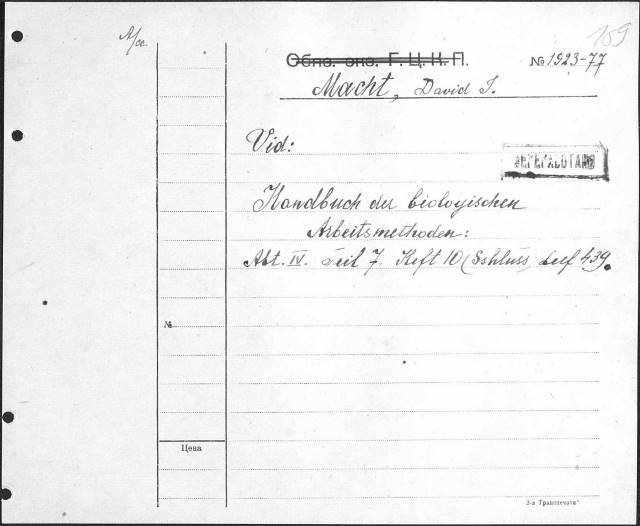 159
A/oc.
Обпо. эпо. Г. Ц. К. П.
№ 1923-77
Macht, David I.
Vid:
ПЕРЕРАБОТАНО
Handbuch der biologischen
Arbeitsmethoden:
Abt. IV. Teil 7. Heft 10 (Schluss) Lief 439.
№
Цена
3-я Транспечати"